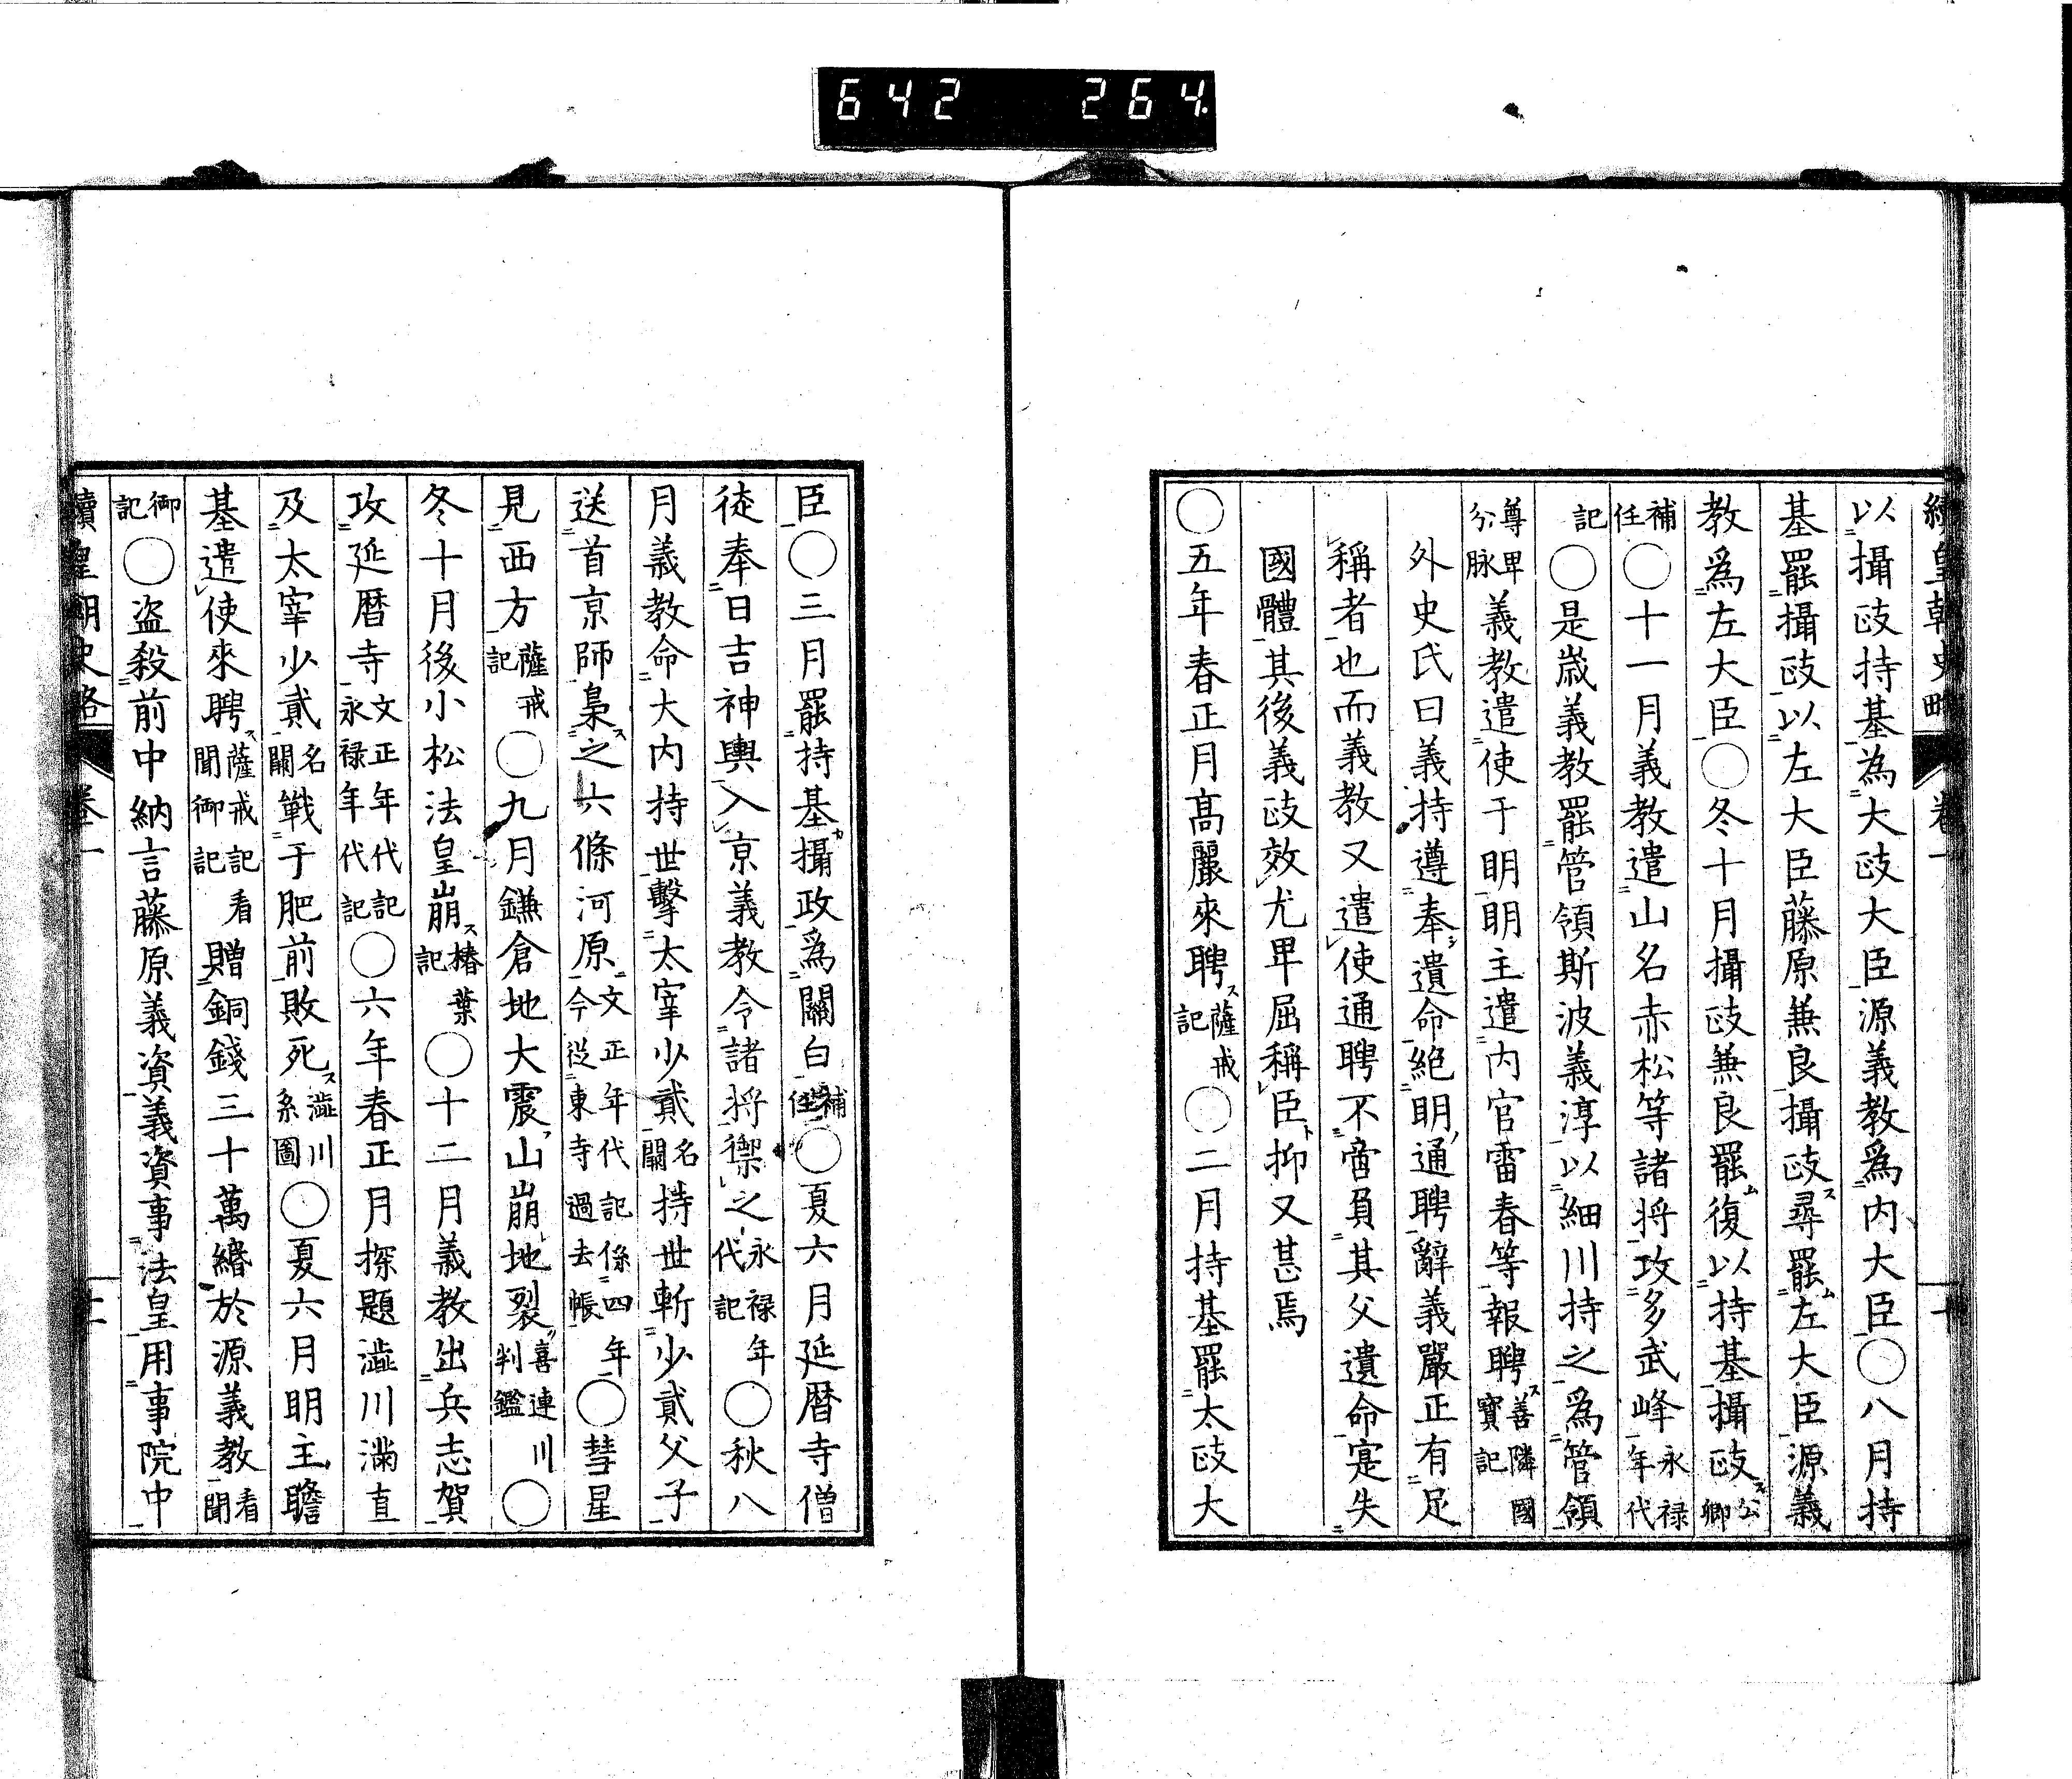 642 264
續皇朝史略 卷一 十
以攝政持基為大政大臣源義教為內大臣〇八月持
基罷攝政以左大臣藤原兼良攝政尋罷左大臣源義
教爲左大臣〇冬十月攝政兼良罷復以持基攝政公卿
補任〇十一月義教遣山名赤松等諸將攻多武峰永禄年代
記〇是歲義教罷管領斯波義淳以細川持之爲管領
尊卑分脉義教遣使于明明主遣内官雷春等報聘善隣國寶記
外史氏曰義持遵奉遺命絕明通聘辭義嚴正有足
稱者也而義教又遣使通聘不啻負其父遺命寔失
國體其後義政效尤卑屈稱臣抑又甚焉
〇五年春正月高麗來聘薩戒記〇二月持基罷太政大
臣〇三月罷持基攝政爲關白補任〇夏六月延曆寺僧
徒奉日吉神輿入京義教令諸將禦之永禄年代記〇秋八
月義教命大内持世擊太宰少貳名闕持世斬少貳父子
送首京師梟之六條河原文正年代記係四年今從東寺過去帳〇彗星
見西方薩戒記〇九月鎌倉地大震山崩地裂喜連川判鑑〇
冬十月後小松法皇崩椿葉記〇十二月義教出兵志賀
攻延曆寺文正年代記永禄年代記〇六年春正月探題澁川滿直
及太宰少貳名闕戰于肥前敗死澁川系圖〇夏六月明主瞻
基遣使來聘薩戒記看聞御記贈銅錢三十萬緡於源義教看聞
御記〇盜殺前中納言藤原義資義資事法皇用事院中
續皇朝史略 卷一